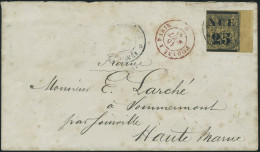 NCE
25
France
Monsieur E. Larché
à Vommermont
par Joinville
Haute Marne